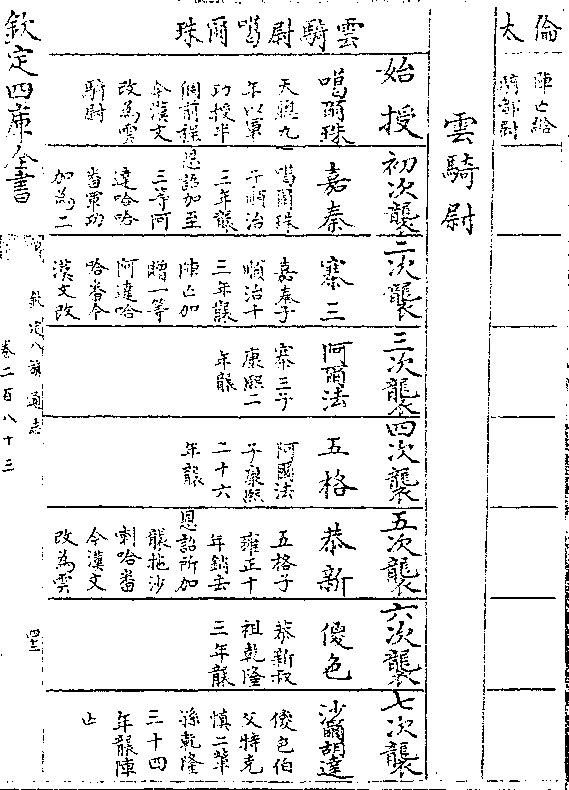 倫太
陣亡給
騎都尉
雲騎尉
雲騎尉噶爾珠
始授
噶爾珠
天聰九
年以軍
功授半
個前程
今漢文
改為雲
騎尉
初次襲
嘉秦
噶爾珠
子順治
三年襲
恩詔加至
三等阿
達哈哈
番軍功
加為二
二次襲
寨三
嘉秦子
順治十
三年襲
陣亡加
贈一等
阿達哈
哈番今
漢文改
三次襲
阿爾法
寨三子
康熙二
年襲
四次襲
五格
阿爾法
子康熙
二十六
年襲
五次襲
恭新
五格子
雍正十
年銷去
恩詔所加
襲拖沙
喇哈番
今漢文
改為雲
六次襲
傻色
恭新叔
祖乾隆
三年襲
七次襲
沙爾胡達
傻色伯
父特克
慎二
孫乾隆
三十四
年襲陣
亡
欽定四庫全書
欽定八旗通志
卷二百八十三